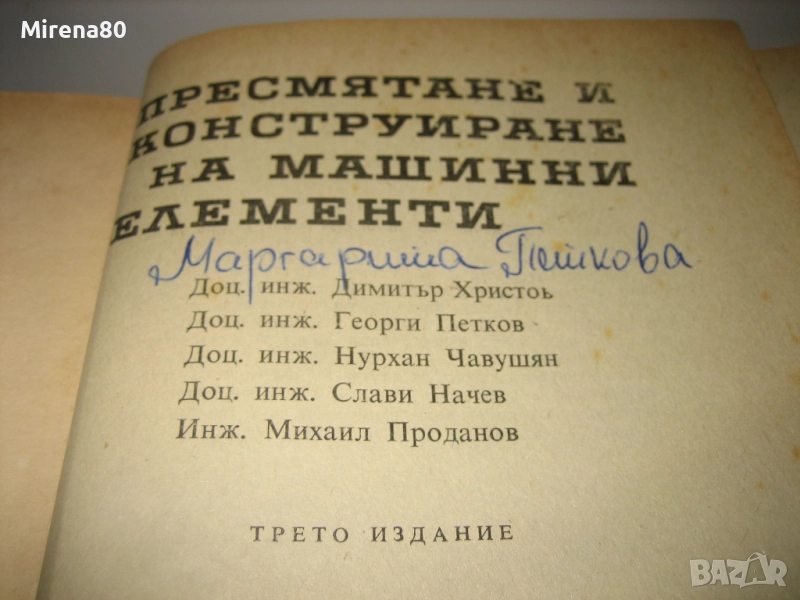 Mirena80
ПРЕСМЯТАНЕ И
КОНСТРУИРАНЕ
НА МАШИННИ
ЕЛЕМЕНТИ
Маргарита Петкова
Доц. инж. Димитър Христов
Доц. инж. Георги Петков
Доц. инж. Нурхан Чавушян
Доц. инж. Слави Начев
Инж. Михаил Проданов
ТРЕТО ИЗДАНИЕ
BAZAR